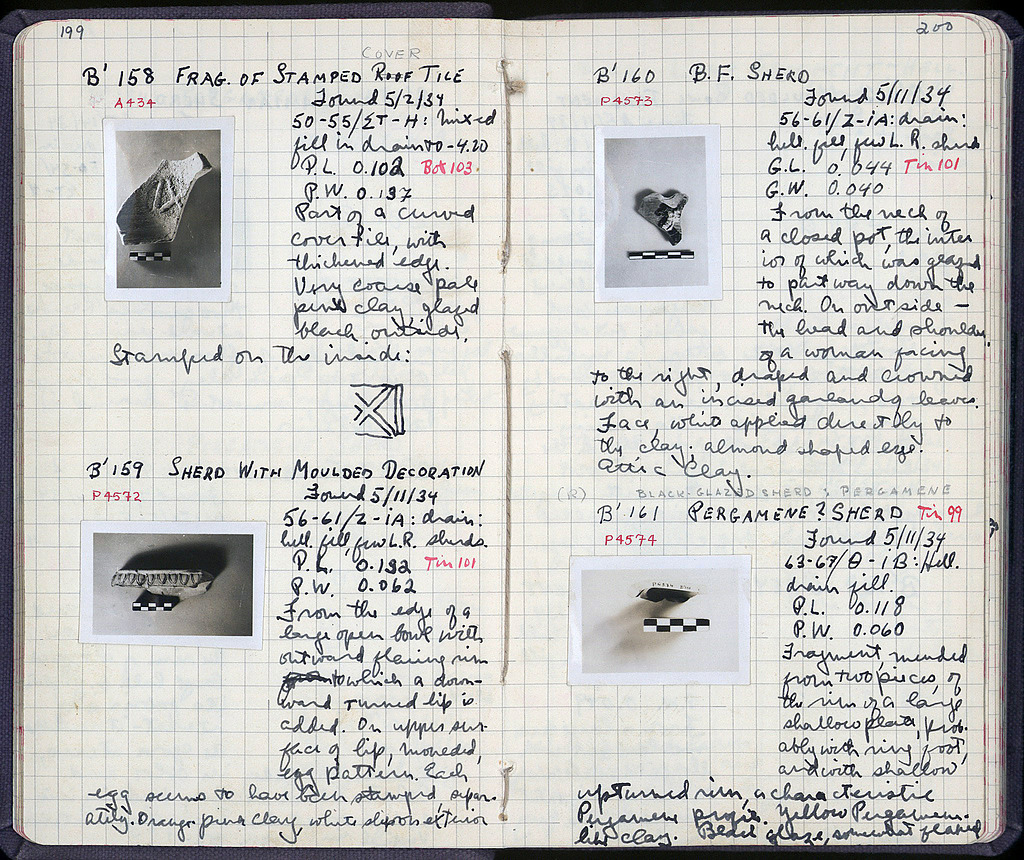 199
COVER
B' 158 FRAG. OF STAMPED ROOF TILE
A434
Found 5/2/34
50-55/ΣT-H: mixed
fill in drain to -4.20
P.L. 0.102 Bot 103.
P.W. 0.137
Part of a curved
cover tile, with
thickened edge.
Very coarse pale
pink clay, glazed
black outside.
Stamped on the inside:
B' 159 SHERD WITH MOULDED DECORATION
P4572
Found 5/11/34
56-61/Z-IA: drain:
hell. fill, few L.R. sherds.
P.L. 0.132 Tin 101
P.W. 0.062
From the edge of a
large open bowl with
outward flaring rim
to which a down-
ward turned lip is
added. On upper sur-
face of lip, moulded,
egg pattern. Each
egg seems to have been stamped separ-
ately. Orange pink clay, white slip on exterior
200
B' 160 B.F. SHERD
P4573
Found 5/11/34
56-61/Z-IA: drain:
hell. fill, few L.R. sherds
G.L. 0.044 Tin 101
G.W. 0.040
From the neck of
a closed pot, the inter
ior of which was glazed
to part way down the
neck. On outside —
the head and shoulder
of a woman facing
to the right, draped and crowned
with an incised garland of leaves.
Face, white applied directly to
the clay; almond shaped eye.
Attic Clay.
(R) BLACK-GLAZED SHERD: PERGAMENE
B' 161 PERGAMENE? SHERD Tin 99
P4574
Found 5/11/34
63-67/Θ-IB: Hell.
drain fill.
P.L. 0.118
P.W. 0.060
Fragment, mended
from two pieces, of
the rim of a large
shallow plate, prob-
ably with ring foot,
and with shallow
upturned rim, a characteristic
Pergamene profile. Yellow Pergamene-
like clay. Black glaze, somewhat flaked